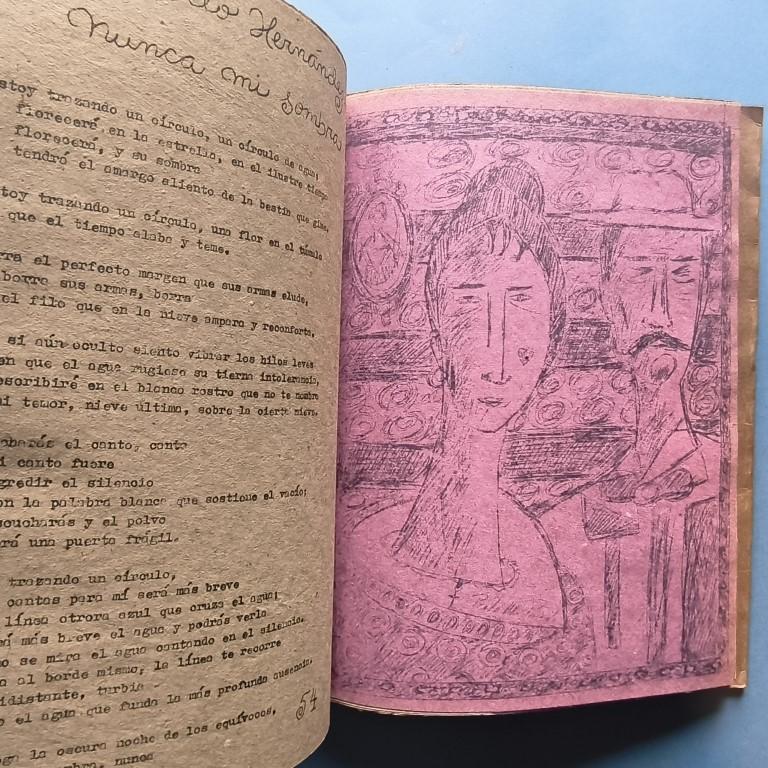 Hernández
Nunca mi Sombra
stoy trazando un círculo, un círculo de agua;
florecerá en la estrella, en el ilustre tiempo
florecerá, y su sombra
tendrá el amargo aliento de la bestia que gime.
stoy trazando un círculo, una flor en el túmulo
que el tiempo alaba y teme.
rra el perfecto margen que sus armas elude,
borre sus armas, borra
el filo que en la nieve ampara y reconforta,
si aún oculto siento vibrar los hilos leves
en que el agua rugiese su tierna intolerancia,
escribiré en el blanco rostro que no te nombre
mi temor, nieve última, sobre la cierta nieve.
abarás el canto, canto
i canto fuere
gredir el silencio
on la palabra blanca que sostiene el vacío;
scucharás y el polvo
rá una puerta frágil.
trazando un círculo,
cantas para mí será más breve
línea otrora azul que cruza el agua;
rá más breve el agua y podrás verla
o se mira el agua cantando en el silencio.
a al borde mismo; la línea te recorre
idistante, turbia
o el agua que funda la más profunda ausencia.
54
ega la oscura noche de los equívocos,
mbra, nunca